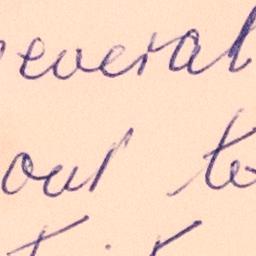 several
out to